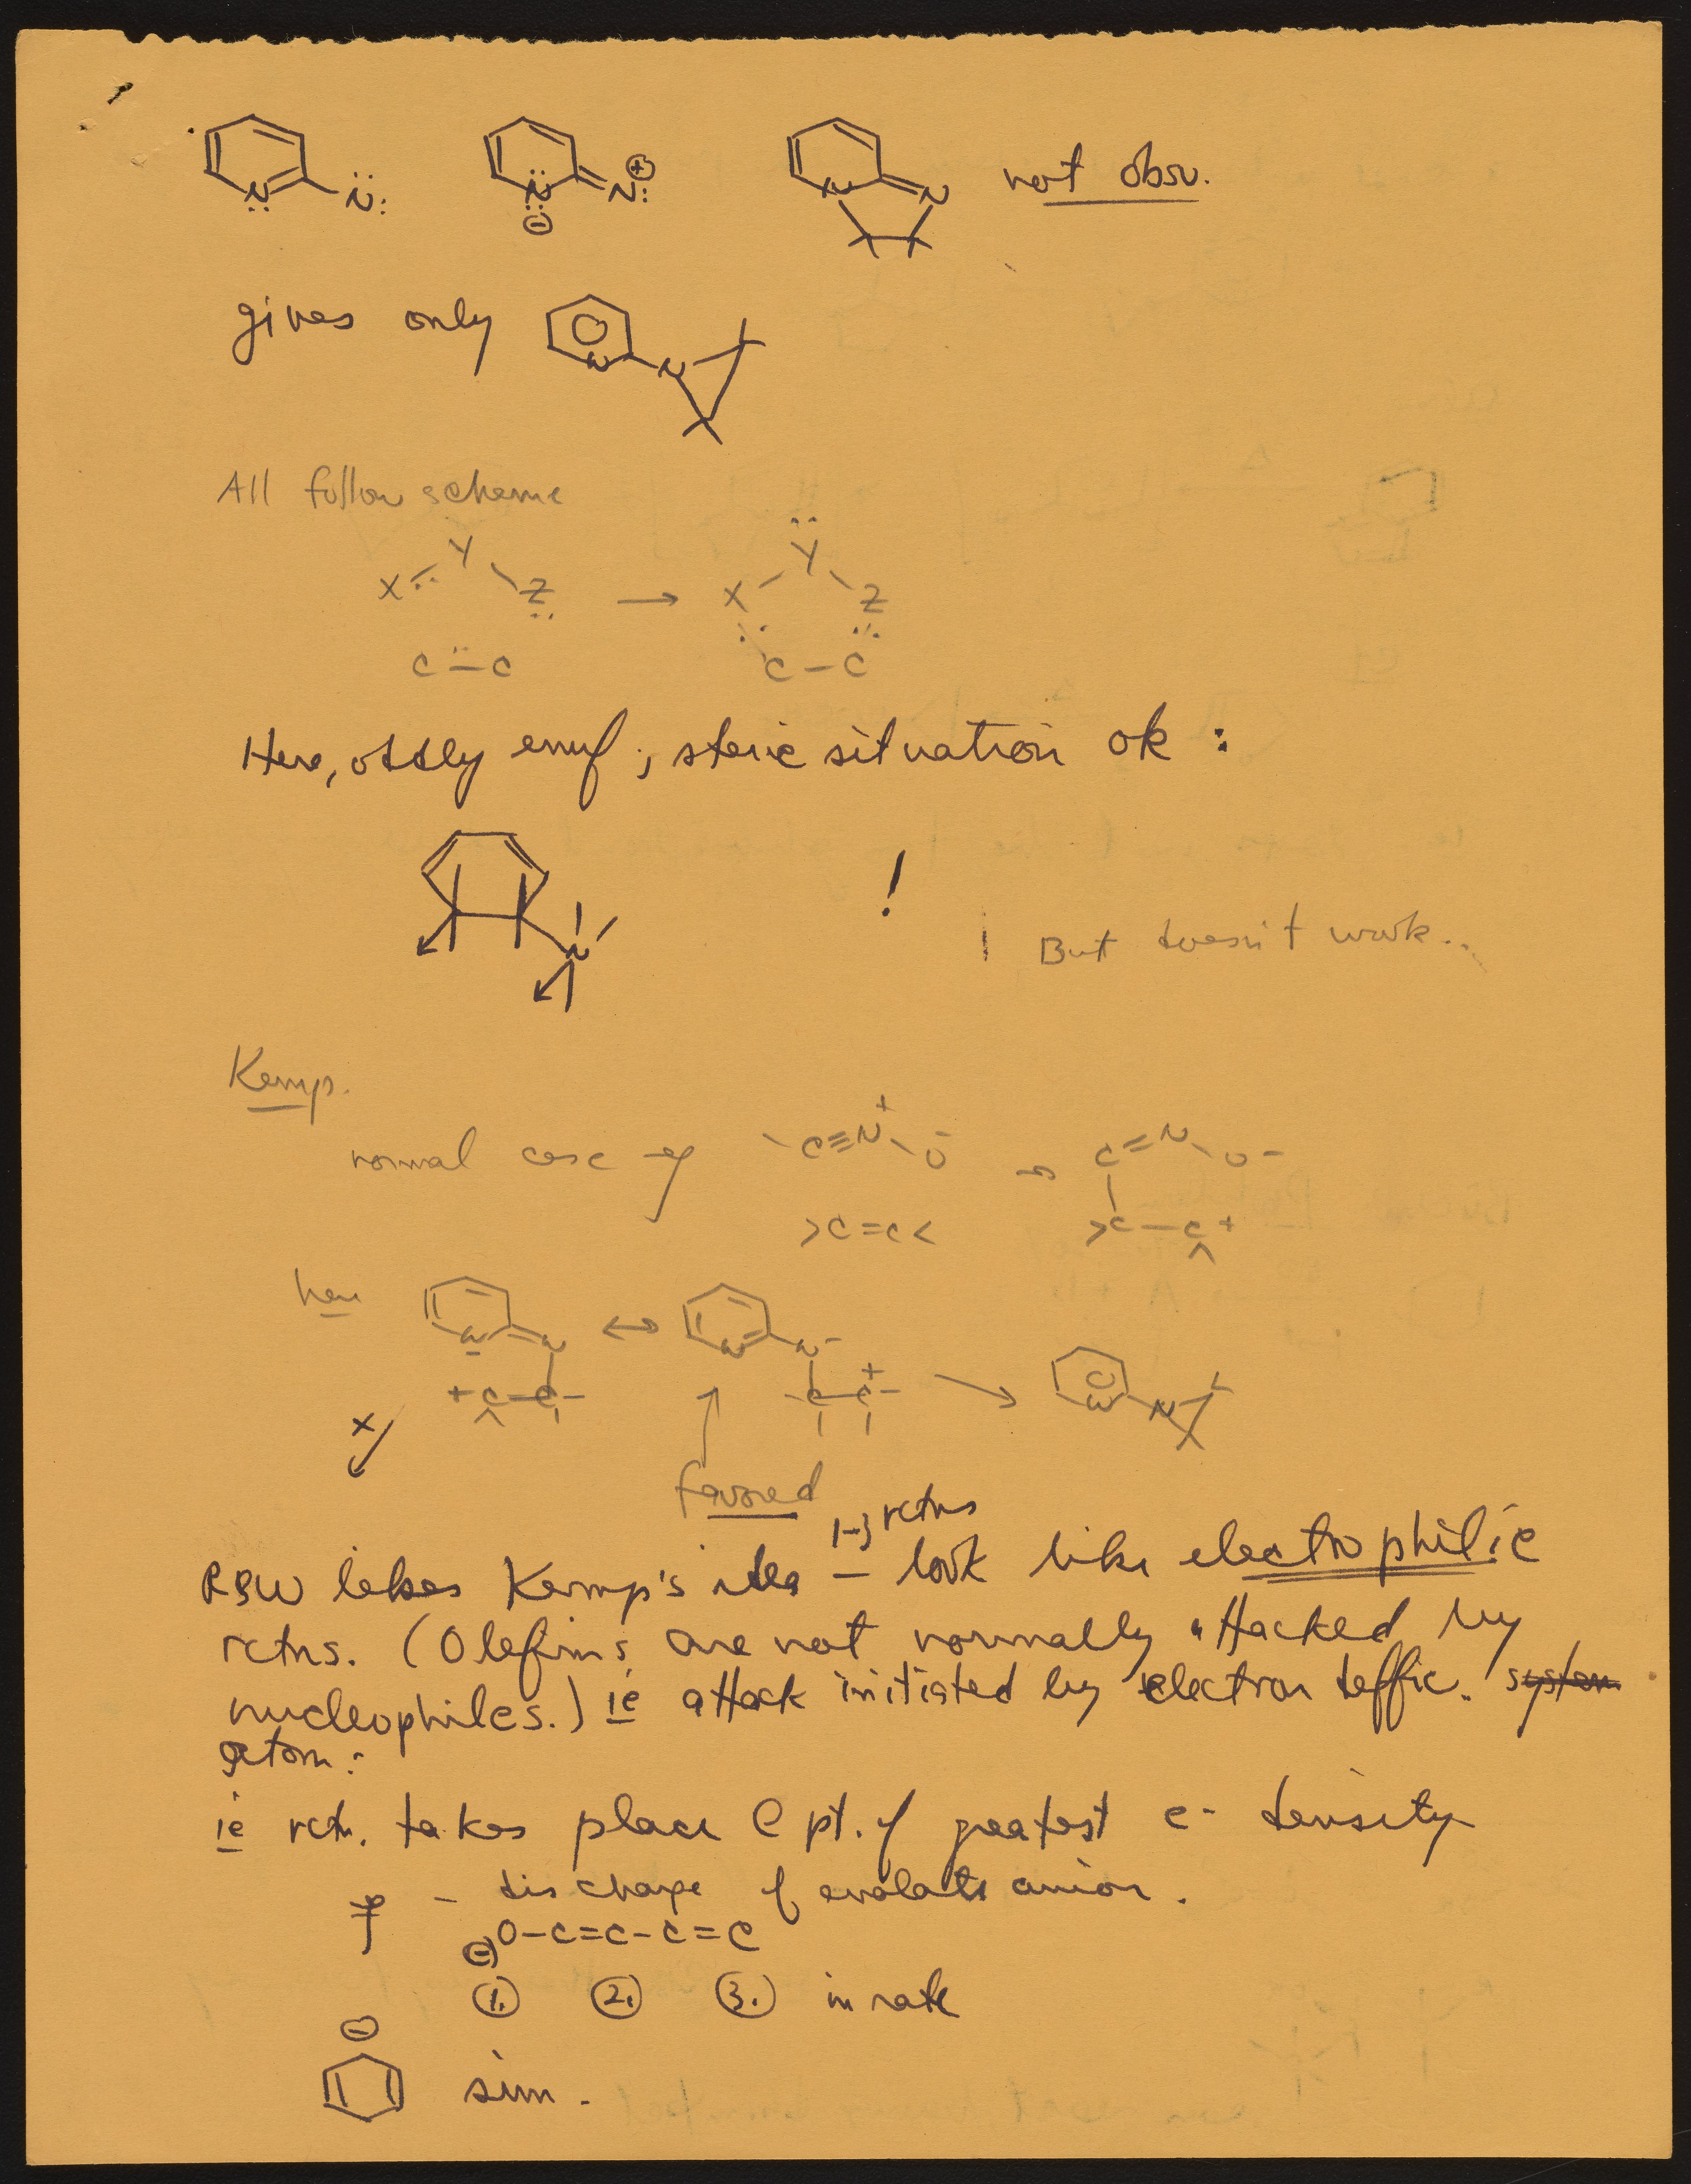 N N: N ⊖ N: ⊕ N N not obsv.
gives only N N
All follow scheme
X Y Z → X Y Z
C — C C — C
Here, oddly enuf, steric situation ok :
N !
But doesn't work..
Kemp.
normal case eg — C≡N⁺—O⁻ → C=N—O⁻
>C=C< >C—C+
here N N ↔ N N⁻ → N N
+C—C— —C—C—+
x
favored
1-3 rctns
RBW likes Kemp's idea — look like electrophilic
rctns. (Olefins are not normally attacked by
nucleophiles.) ie attack initiated by electron deffic. system
atom :
ie rctn. takes place @ pt. of greatest e- density
- discharge of enolate anion.
⊖O-C=C-C=C
①. ②. ③. in rate
⊖
sim.